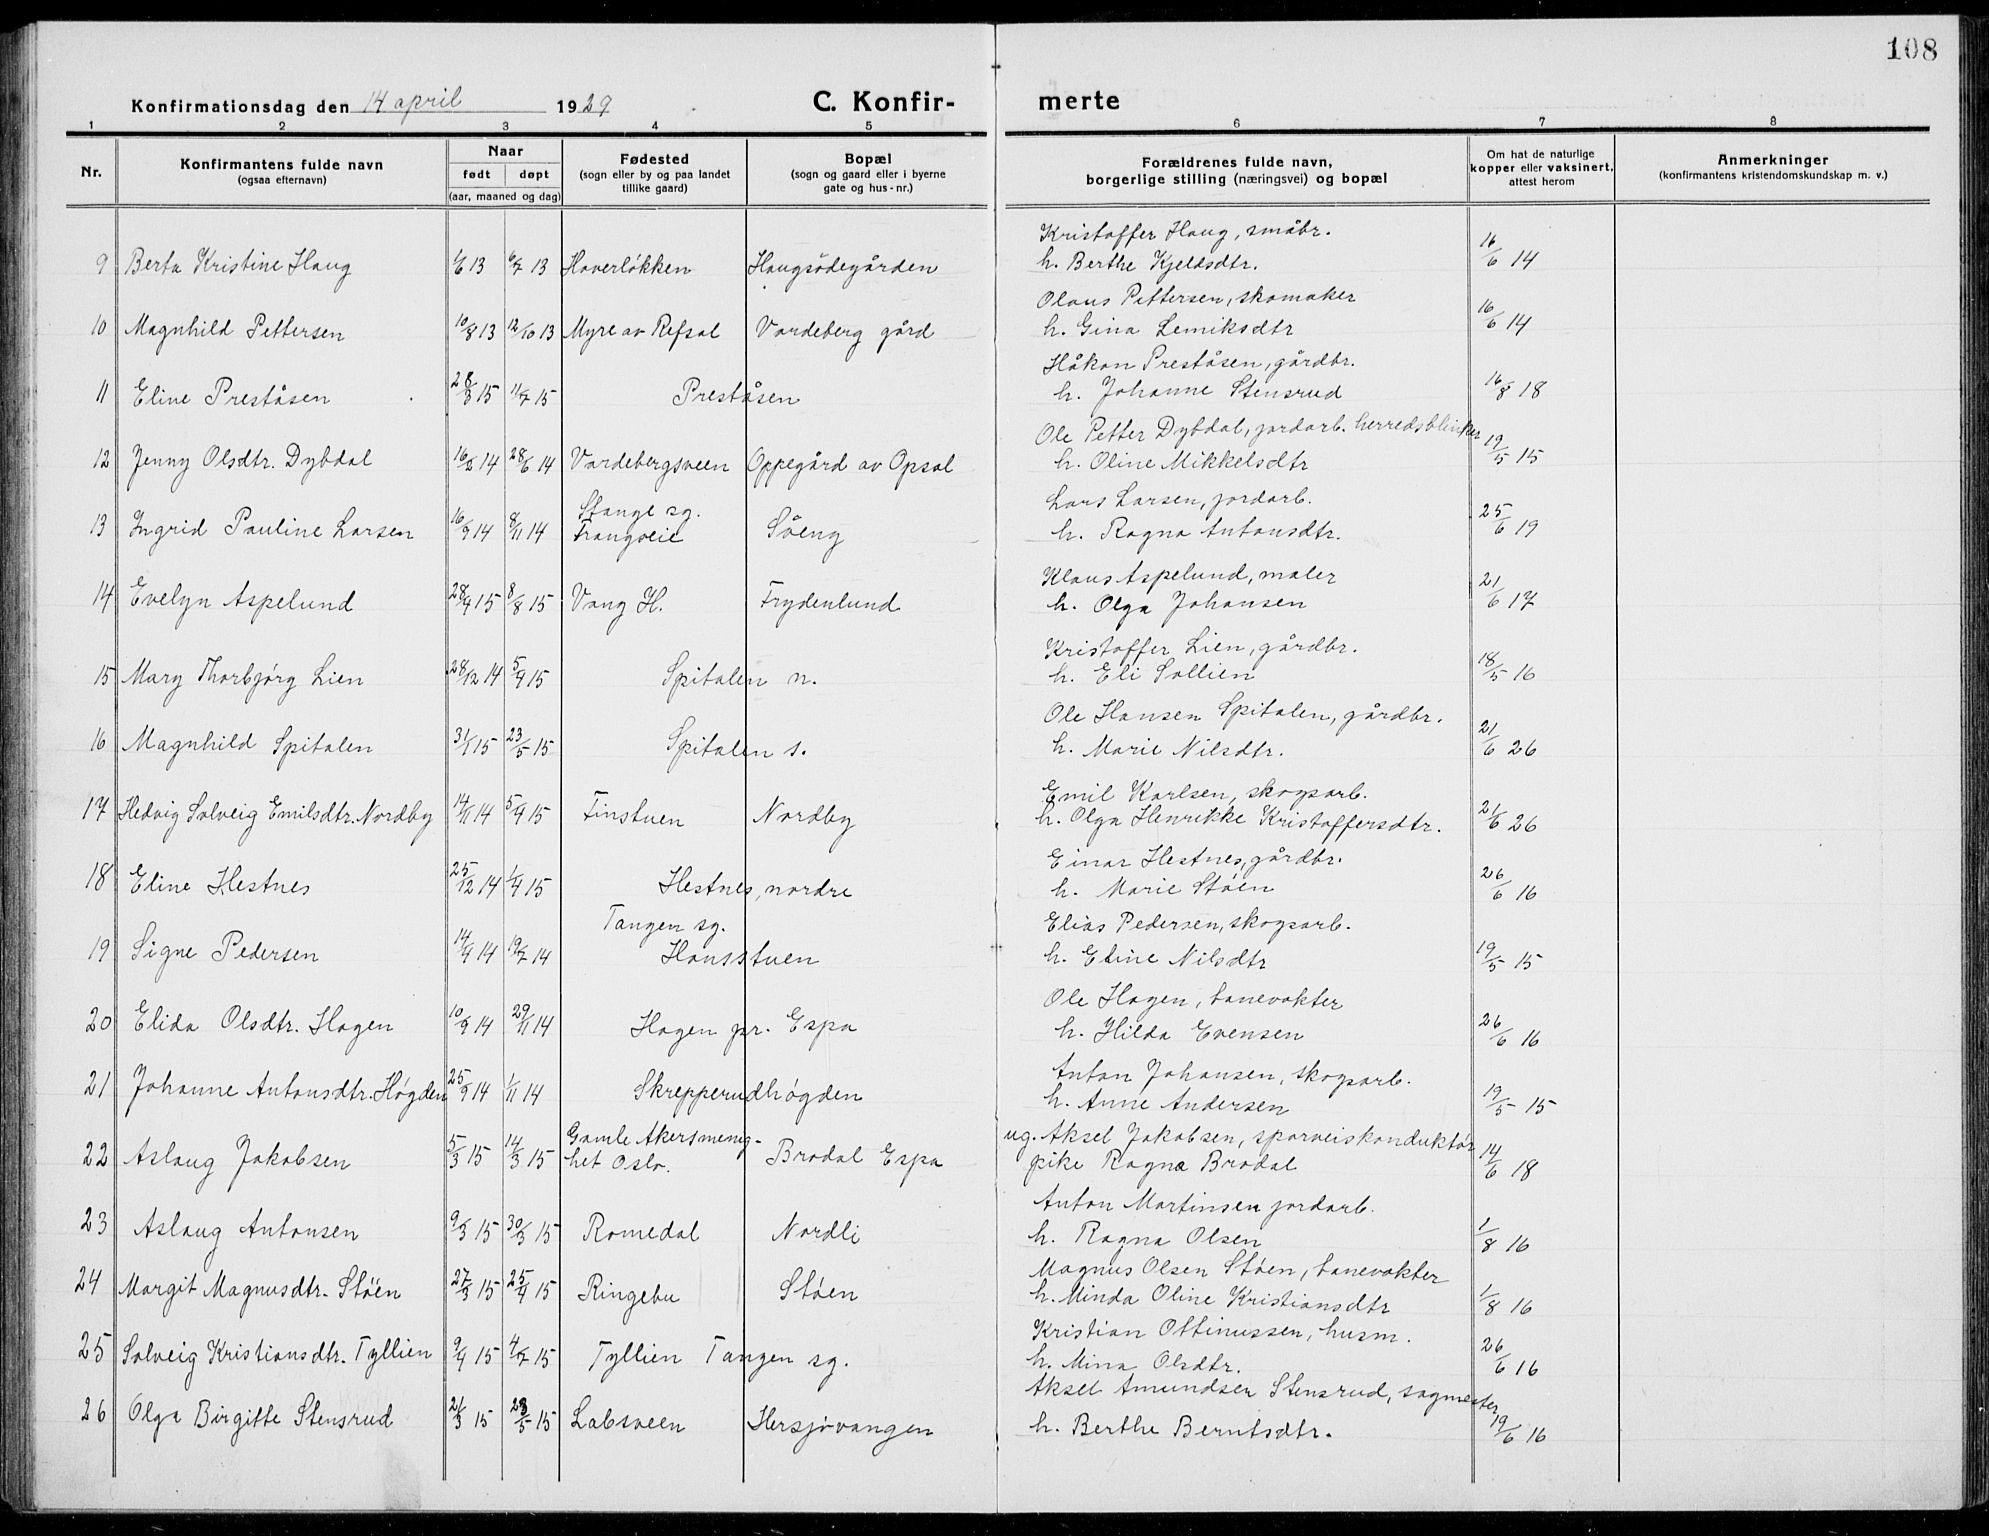 108
Konfirmationsdag den 14 april 1929 C. Konfir- merte
1 2 3 4 5 6 7 8
Nr. Konfirmantens fulde navn (ogsaa efternavn) Naar født døpt (aar, maaned og dag) Fødested (sogn eller by og paa landet tillike gaard) Bopæl (sogn og gaard eller i byerne gate og hus-nr.) Forældrenes fulde navn, borgerlige stilling (næringsvei) og bopæl Om hat de naturlige kopper eller vaksinert, attest herom Anmerkninger (konfirmantens kristendomskundskap m. v.)
Kristoffer Haug, småbr.
9 Berta Kristine Haug 1/6 13 6/7 13 Haverløkken Haugsødegården h. Berthe Kjeldsdtr. 16/6 14
Olaus Pettersen, skomaker
10 Magnhild Pettersen 10/8 13 12/10 13 Myre av Refsal Vardeberg gård h. Gina Lemiksdtr 16/6 14
Håkon Preståsen, gårdbr.
11 Eline Preståsen 28/3 15 11/7 15 Preståsen h. Johanne Stensrud 16/8 18
Ole Petter Dybdal, jordarb. herredsblinker
12 Jenny Olsdtr. Dybdal 14 28/6 14 Vardebergsveen Oppegård av Opsal h. Oline Mikkelsdtr 19/5 15
Stange sg. Lars Larsen, jordarb.
13 Ingrid Pauline Larsen 16/9 14 8/11 14 Trangveie Søeng h. Ragna Antonsdtr. 25/6 19
Klaus Aspelund, maler
14 Evelyn Aspelund 28/4 15 8/8 15 Vang H. Frydenlund h. Olga Johansen 21/6 17
Kristoffer Lien, gårdbr.
15 Mary Thorbjørg Lien 28/12 14 5/4 15 Spitalen n. h. Eli Sollien 18/5 16
Ole Hansen Spitalen, gårdbr.
16 Magnhild Spitalen 31/1 15 23/5 15 Spitalen s. h. Marie Nilsdtr. 21/6 26
Emil Karlsen, skogsarb.
17 Hedvig Solveig Emilsdtr. Nordby 14/11 14 5/4 15 Finstuen Nordby h. Olga Henrikke Kristoffersdtr. 21/6 26
Einar Hestnes, gårdbr.
18 Eline Hestnes 25/12 14 1/4 15 Hestnes, nordre h. Marie Støen 26/6 16
Tangen sg. Elias Pedersen, skogsarb.
19 Signe Pedersen 14/4 14 19/7 14 Hansstuen h. Eline Nilsdtr 19/5 15
Ole Hagen, banevokter
20 Elida Olsdtr. Hagen 10/9 14 29/11 14 Hagen pr. Espa h. Hilda Evensen 26/6 16
Anton Johansen, skogsarb.
21 Johanne Antonsdtr. Høgden 25/9 14 1/11 14 Skrepperudhøgden h. Anne Andersen 19/5 15
Gamle Akersmenig- ug. Aksel Jakobsen, sporveiskonduktør
22 Aslaug Jakobsen 5/3 15 14/3 15 het Oslo. Brodal Espa pike Ragna Brodal 14/6 18
Anton Martinsen jordarb.
23 Aslaug Antonsen 9/3 15 30/3 15 Romedal Nordli h. Ragna Olsen 1/8 16
Magnus Olsen Støen, banevokter
24 Margit Magnusdtr. Støen 27/3 15 25/4 15 Ringebu Støen h. Minda Oline Kristiansdtr 1/8 16
Kristian Ottinussen, husm.
25 Solveig Kristiansdtr. Tyllien 9/4 15 4/7 15 Tyllien Tangen sg. h. Mina Olsdtr. 26/6 16
Aksel Amundsen Stensrud, sagmester
26 Olga Birgitte Stensrud 21/3 15 23/5 15 Labsveen Hersjøvangen h. Berthe Berntsdtr. 19/6 16